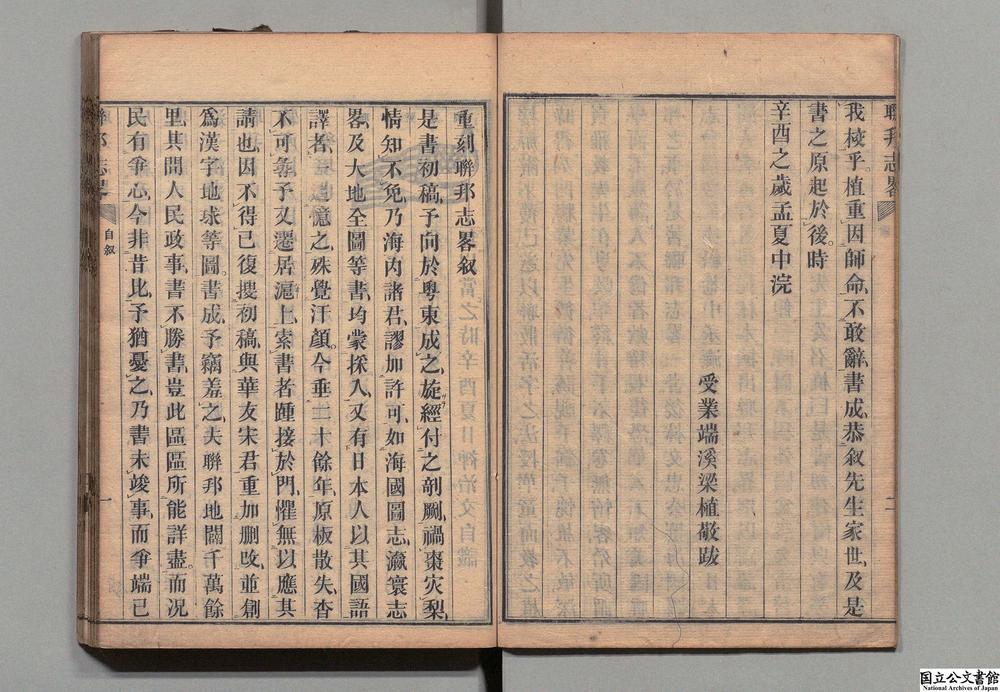 聯邦志畧
二
我梭乎植重因師命不敢辭書成恭叙先生家世及是
書之原起於後時
辛酉之歲孟夏中浣
受業端溪梁植敬跋
重刻聯邦志畧叙
是書初稿予向於粵東成之旋經付之剞劂禍棗災梨
情知不免乃海内諸君謬加許可如海國圖志瀛寰志
畧及大地全圖等書均蒙採入又有日本人以其國語
譯者追憶之殊覺汗顔今垂二十餘年原板散失杳
不可尋予又遷居滬上索書者踵接於門懼無以應其
請也因不得已復搜初稿與華友宋君重加删改並創
爲漢字地球等圖書成予竊羞之夫聯邦地闊千萬餘
里其間人民政事書不勝書豈此區區所能詳盡而况
民有爭心今非昔比予猶憂之乃書未竣事而爭端已
聯邦志畧
自叙
一
国立公文書館
National Archives of Japan